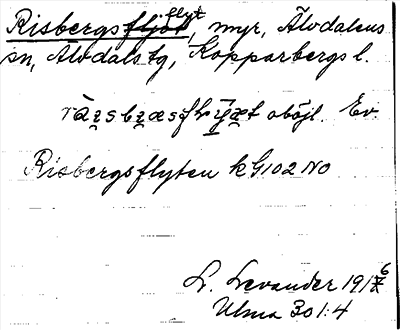 Risbergsflyt, myr, Älvdalens
sn, Älvdals tg, Kopparbergs l.
oböjl. Ev.
Risbergsflyten k G102 NO
L. Levander 1916
Ulma 301:4